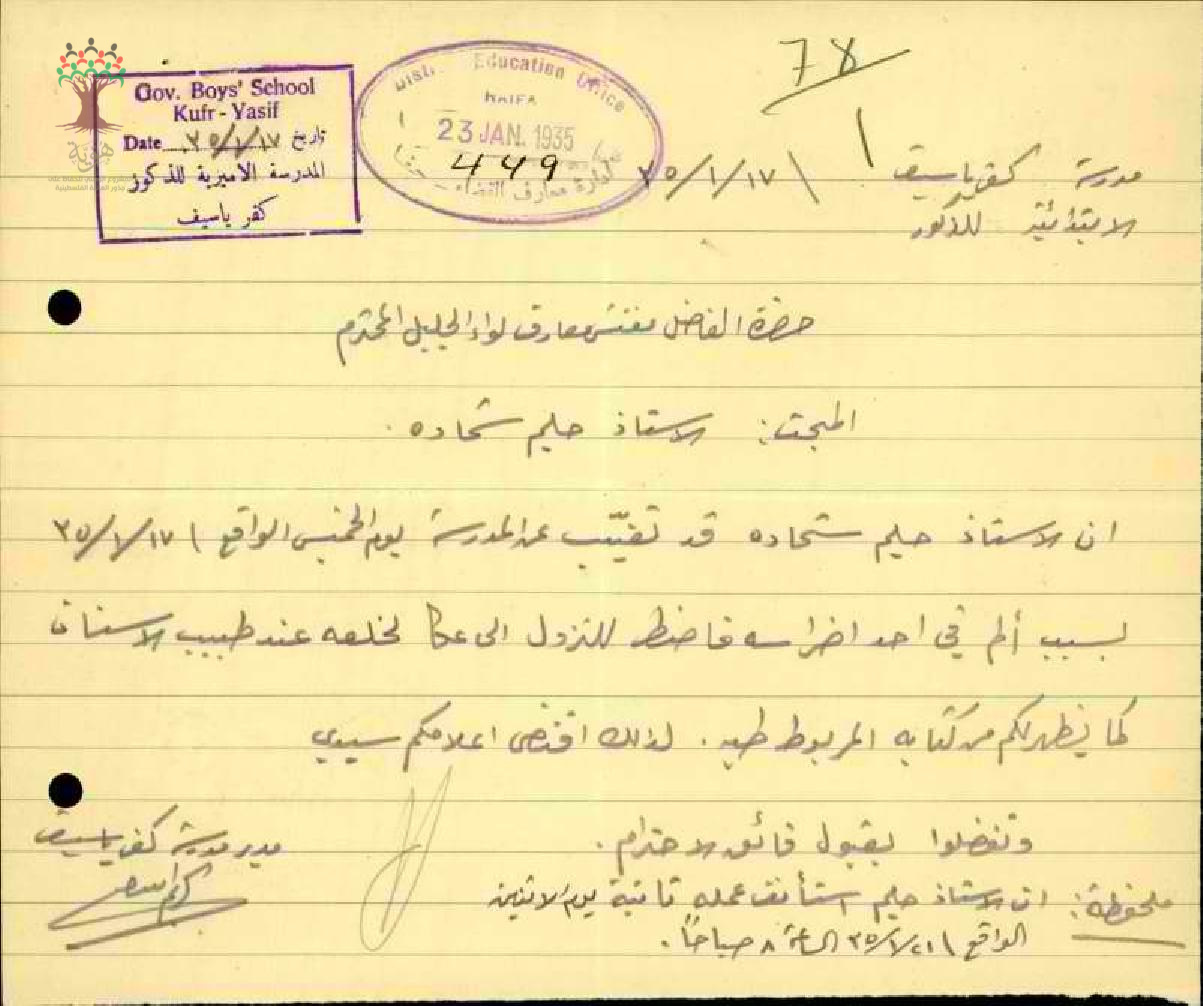 78
Gov. Boys' School
Kufr - Yasif
Date ٣٥/١/١٧ تاريخ
المدرسة الاميرية للذكور
كفر ياسيف
District Education Office
HAIFA
23 JAN. 1935
449
ادارة معارف القضاء - حيفا
مدرسة كفر ياسيف \ ٣٥/١/١٧
الابتدائية للذكور
حضرة الفاضل مفتش معارف لواء الجليل المحترم
المبحث: الاستاذ حليم شحاده.
ان الاستاذ حليم شحاده قد تغيّب عن المدرسة يوم الخميس الواقع \ ٣٥/١/١٧
لسبب ألم في احد اضراسه فاضطر للنزول الى عكا لخلعه عند طبيب الاسنان
كما يظهر لكم من كتابه المربوط طيه. لذلك اقتضى اعلامكم سيدي
وتفضلوا بقبول فائق الاحترام.
مدير مدرسة كفر ياسيف
ملحوظة: ان الاستاذ حليم استأنف عمله ثانية يوم الاثنين
الواقع \ ٣٥/١/٢١ الساعة ٨ صباحاً.